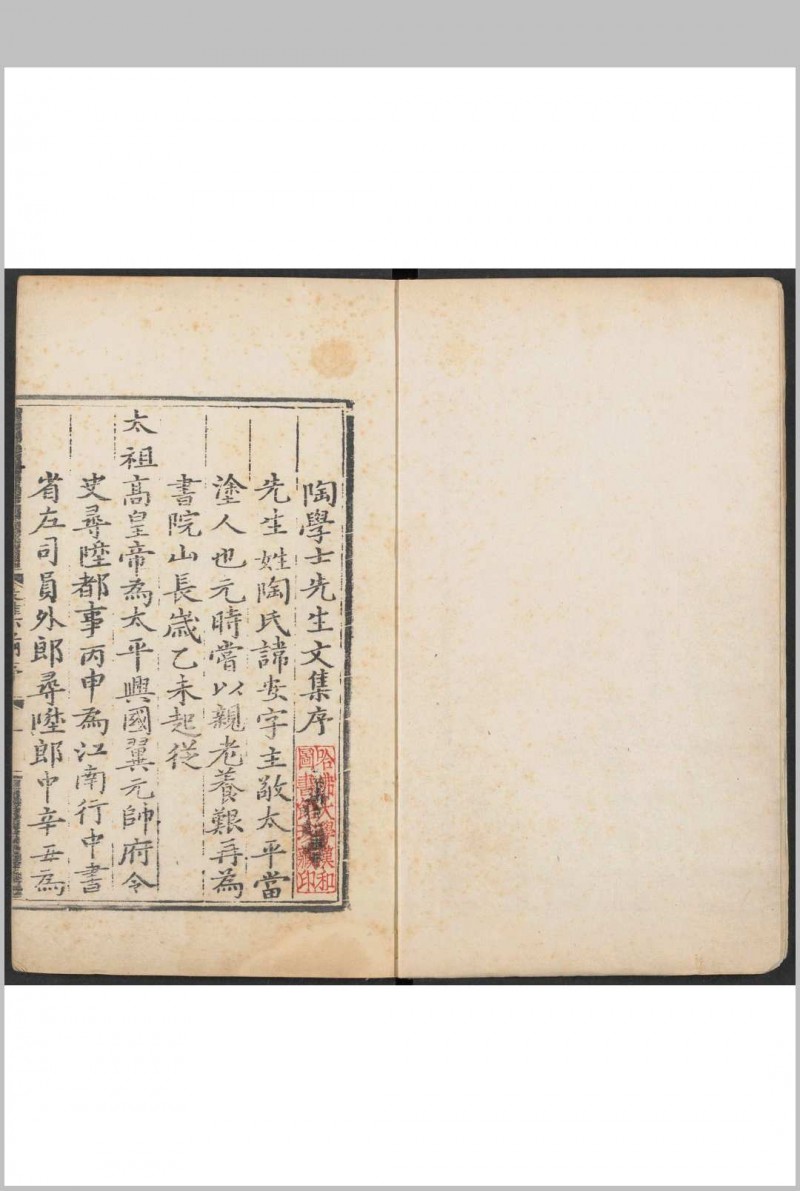 陶學士先生文集序
先生姓陶氏諱安字主敬太平當
塗人也元時嘗以親老養艱再為
書院山長歲乙未起從
太祖高皇帝為太平興國翼元帥府令
史尋陞都事丙申為江南行中書
省左司員外郎尋陞郎中辛丑為
哈佛大學漢和
圖書館藏印